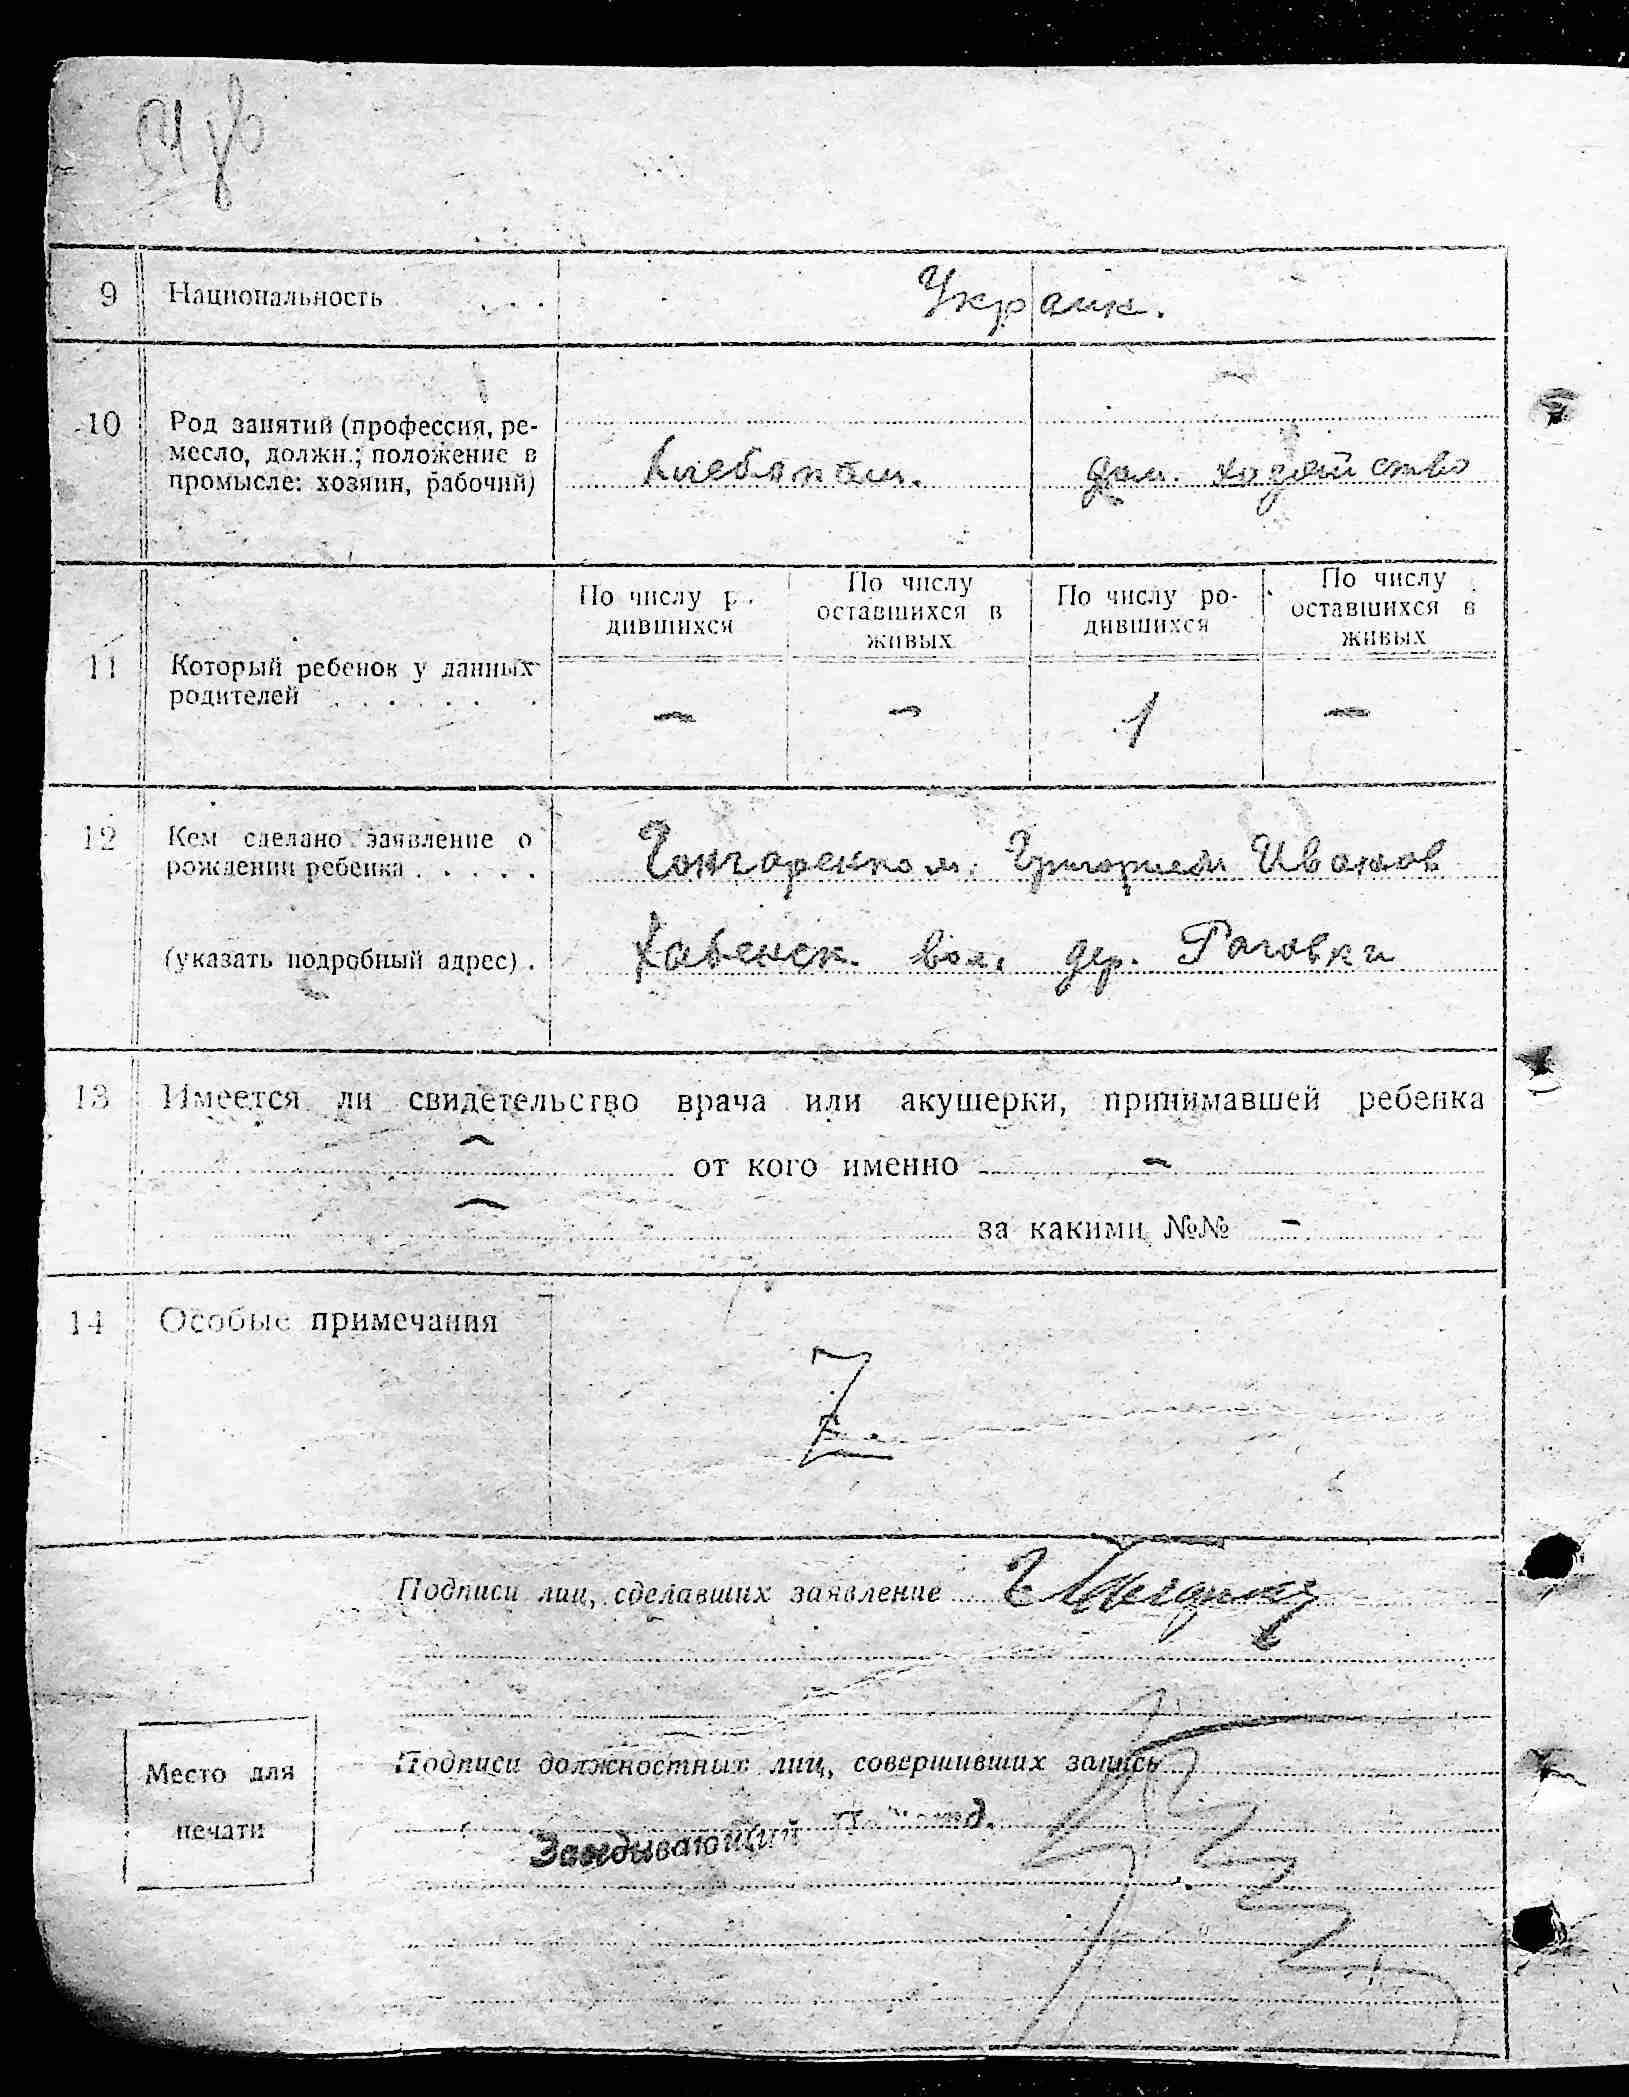 9 Национальность . . . Украин.
10 Род занятий (профессия, ре-
месло, должн.; положение в
промысле: хозяин, рабочий)
Хлебопаш. дом. хозяйство
11 Который ребенок у данных
родителей . . . . . .
По числу р.
дившихся
По числу
оставшихся в
живых
По числу ро-
дившихся
По числу
оставшихся в
живых
— — 1 —
12 Кем сделано заявление о
рождении ребенка . . . . .
Гончаренком. Григорием Иванов
(указать подробный адрес) .
Хабенск. вол. дер. Раговки
13 Имеется ли свидетельство врача или акушерки, принимавшей ребенка
— от кого именно —
— за какими №№ —
14 Особые примечания
Z
Подписи лиц, сделавших заявление
Подписи должностных лиц, совершивших запись
Заведывающий
Место для
печати